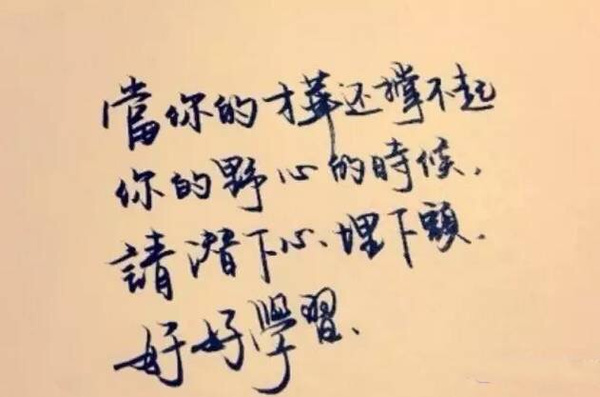 當你的才華还撐不起
你的野心的時候,
請潜下心、埋下頭、
好好學習、